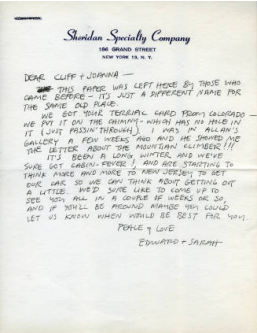 Sheridan Specialty Company
186 GRAND STREET
NEW YORK 13, N.Y.
DEAR CLIFF + JOANNA -
THIS PAPER WAS LEFT HERE BY THOSE WHO
CAME BEFORE - IT'S JUST A DIFFERENT NAME FOR
THE SAME OLD PLACE.
WE GOT YOUR TERRIAL CARD FROM COLORADO -
WE PUT IT ON THE CHIMNY - WHICH HAS NO HOLE IN
IT (JUST PASSIN' THROUGH). I WAS IN ALLAN'S
GALLERY A FEW WEEKS AGO AND HE SHOWED ME
THE LETTER ABOUT THE MOUNTAIN CLIMBER!!!
IT'S BEEN A LONG WINTER AND WE'VE
SURE GOT CABIN-FEVER!, AND ARE STARTING TO
THINK MORE AND MORE TO NEW JERSEY TO GET
OUR CAR SO WE CAN THINK ABOUT GETTING OUT
A LITTLE. WE'D SURE LIKE TO COME UP TO
SEE YOU ALL IN A COUPLE OF WEEKS OR SO,
AND IF YOU'LL BE AROUND MAYBE YOU COULD
LET US KNOW WHEN WOULD BE BEST FOR YOU.
PEACE + LOVE
EDWARD + SARAH